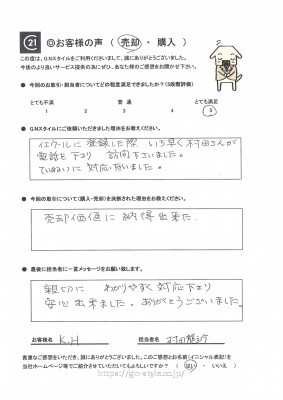 21 ◎お客様の声 ( 売却 ・ 購入 )
この度は、G.Nスタイルをご利用くださいまして、誠にありがとうございました。
今後のより良いサービス提供の為にぜひ、あなた様のご感想をお聞かせ下さい。
● 今回のお取引・担当者についてどの程度満足できましたか？（5段階評価）
とても不満 普通 とても満足
1 2 3 4 5
● G.Nスタイルにご依頼いただきました理由をお教えください。
イエウールに登録した際 いち早く村田さんが
電話を下さり 訪問下さいました。
ていねいに対応下さいました。
● 今回の取引について(購入・売却)を決断された理由をお教えください。
売却価値に納得出来た.
● 最後に担当者に一言メッセージをお願い致します。
親切に わかりやすく対応下さり
安心出来ました。ありがとうございました。
お客様名 K.H 担当者名 村田
貴重なご感想をいただき、誠にありがとうございました。このご感想とお名前(イニシャル表記)を
当社ホームページ等でご紹介させていただいてもよろしいですか？ ( はい ・ いいえ )
https://gn-style.co.jp/